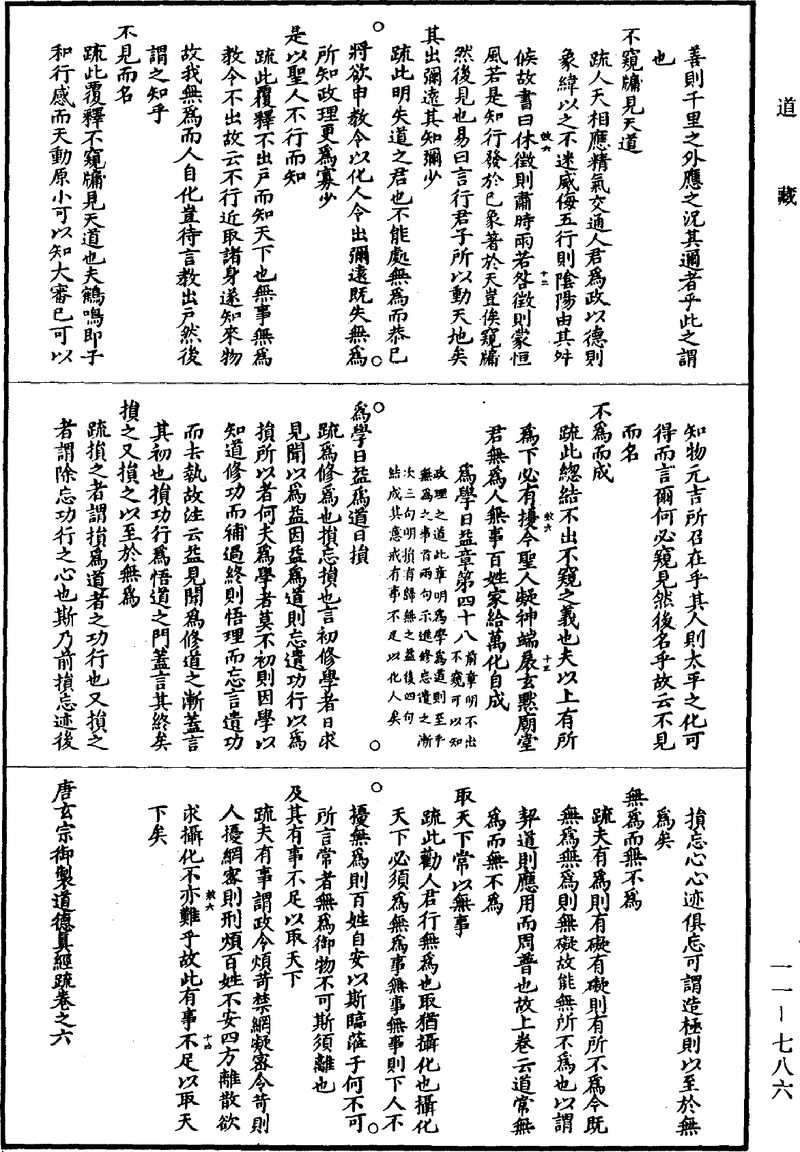 道藏
善則千里之外應之況其邇者乎此之謂
也
不窺牖見天道
疏人天相應精氣交通人君爲政以德則
象緯以之不迷威侮五行則陰陽由其舛
候故書曰休徵則肅時雨若咎徵則蒙恒
風若是知行發於已象著於天豈俟窺牖
然後見也易曰言行君子所以動天地矣
其出彌遠其知彌少
疏此明失道之君也不能處無爲而恭已
將欲申教令以化人令出彌遠既失無爲
所知政理更爲寡少
是以聖人不行而知
疏此覆釋不出戶而知天下也無事無爲
教令不出故云不行近取諸身遂知來物
故我無爲而人自化豈待言教出戶然後
謂之知乎
不見而名
疏此覆釋不窺牖見天道也夫鶴鳴即子
和行感而天動原小可以知大審已可以
知物元吉所召在乎其人則太平之化可
得而言爾何必窺見然後名乎故云不見
而名
不爲而成
疏此緫結不出不窺之義也夫以上有所
爲下必有擾今聖人凝神端扆玄默廟堂
君無爲人無事百姓家給萬化自成
爲學日益章第四十八 前章明不出不窺可以知
政理之道此章明爲學爲道則至乎
無爲之事首兩句示進修忘遣之漸
次三句明損有歸無之益後四句
結成其意戒有事不足以化人矣
爲學日益爲道日損
疏爲修爲也損忘損也言初修學者日求
見聞以爲益因益爲道則忘遺功行以爲
損所以者何夫爲學者莫不初則因學以
知道修功而補過終則悟理而忘言遺功
而去執故注云益見聞爲修道之漸蓋言
其初也損功行爲悟道之門蓋言其終矣
損之又損之以至於無爲
疏損之者謂損爲道者之功行也又損之
者謂除忘功行之心也斯乃前損忘迹後
損忘心心迹俱忘可謂造極則以至於無
爲矣
無爲而無不爲
疏夫有爲則有礙有礙則有所不爲今既
無爲無爲則無礙故能無所不爲也以謂
契道則應用而周普也故上卷云道常無
爲而無不爲
取天下常以無事
疏此勸人君行無爲也取猶攝化也攝化
天下必須爲無爲事無事無事則下人不
擾無爲則百姓自安以斯臨蒞于何不可
所言常者無爲御物不可斯須離也
及其有事不足以取天下
疏夫有事謂政令煩苛禁網凝密令苛則
人擾網密則刑煩百姓不安四方離散欲
求攝化不亦難乎故此有事不足以取天
下矣
唐玄宗御製道德真經疏卷之六
一一—七八六